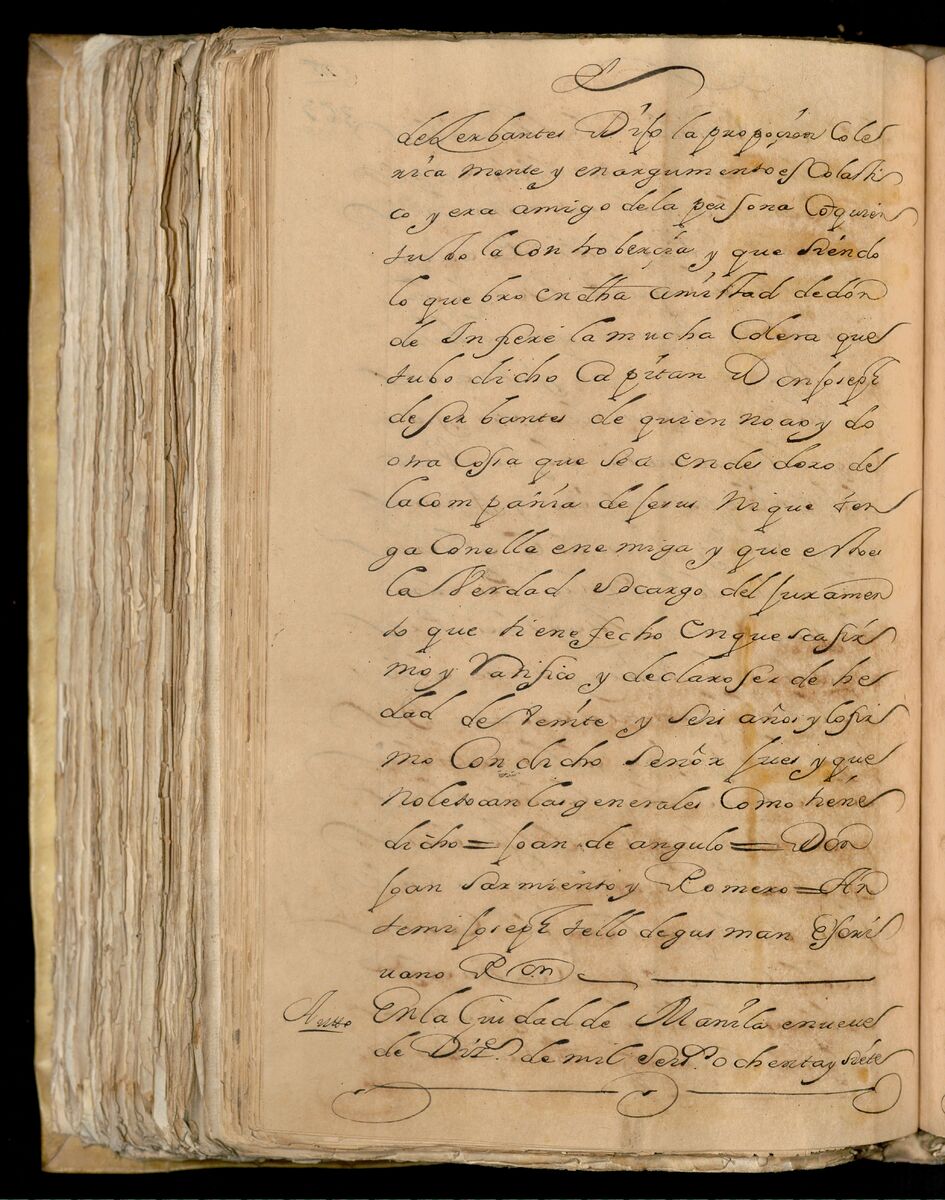 de Zerbantes Dijo la propoçision Cole
rica mente y en argumento escolasti
co y era amigo dela persona Co quien
tubo la Controberçia y que siendo
lo quebro en dha amistad dedon
de Infiere la mucha Colera que
tubo dicho Capitan Don Joseph
de Serbantes de quien no aoydo
otra Cossa que sea en desdoro de
la Compañia de Jesus Ni que ten
ga Con ella enemiga y que esto es
la Verdad so cargo del Juramen
to que tiene fecho En que se afir
mo y Ratifico y declaro ser de he
dad de Veinte y seis años y lo fir
mo Con dicho señor Juez y que
No le tocan las generales Como tiene
dicho = Joan de angulo = Don
Joan Sarmiento y Romero = An
te mi Joseph tello de gusman Escri
uano Ron
Autto En la Ciudad de Manila en nueve
de Diz.e de mil Seis.s ochenta y siete